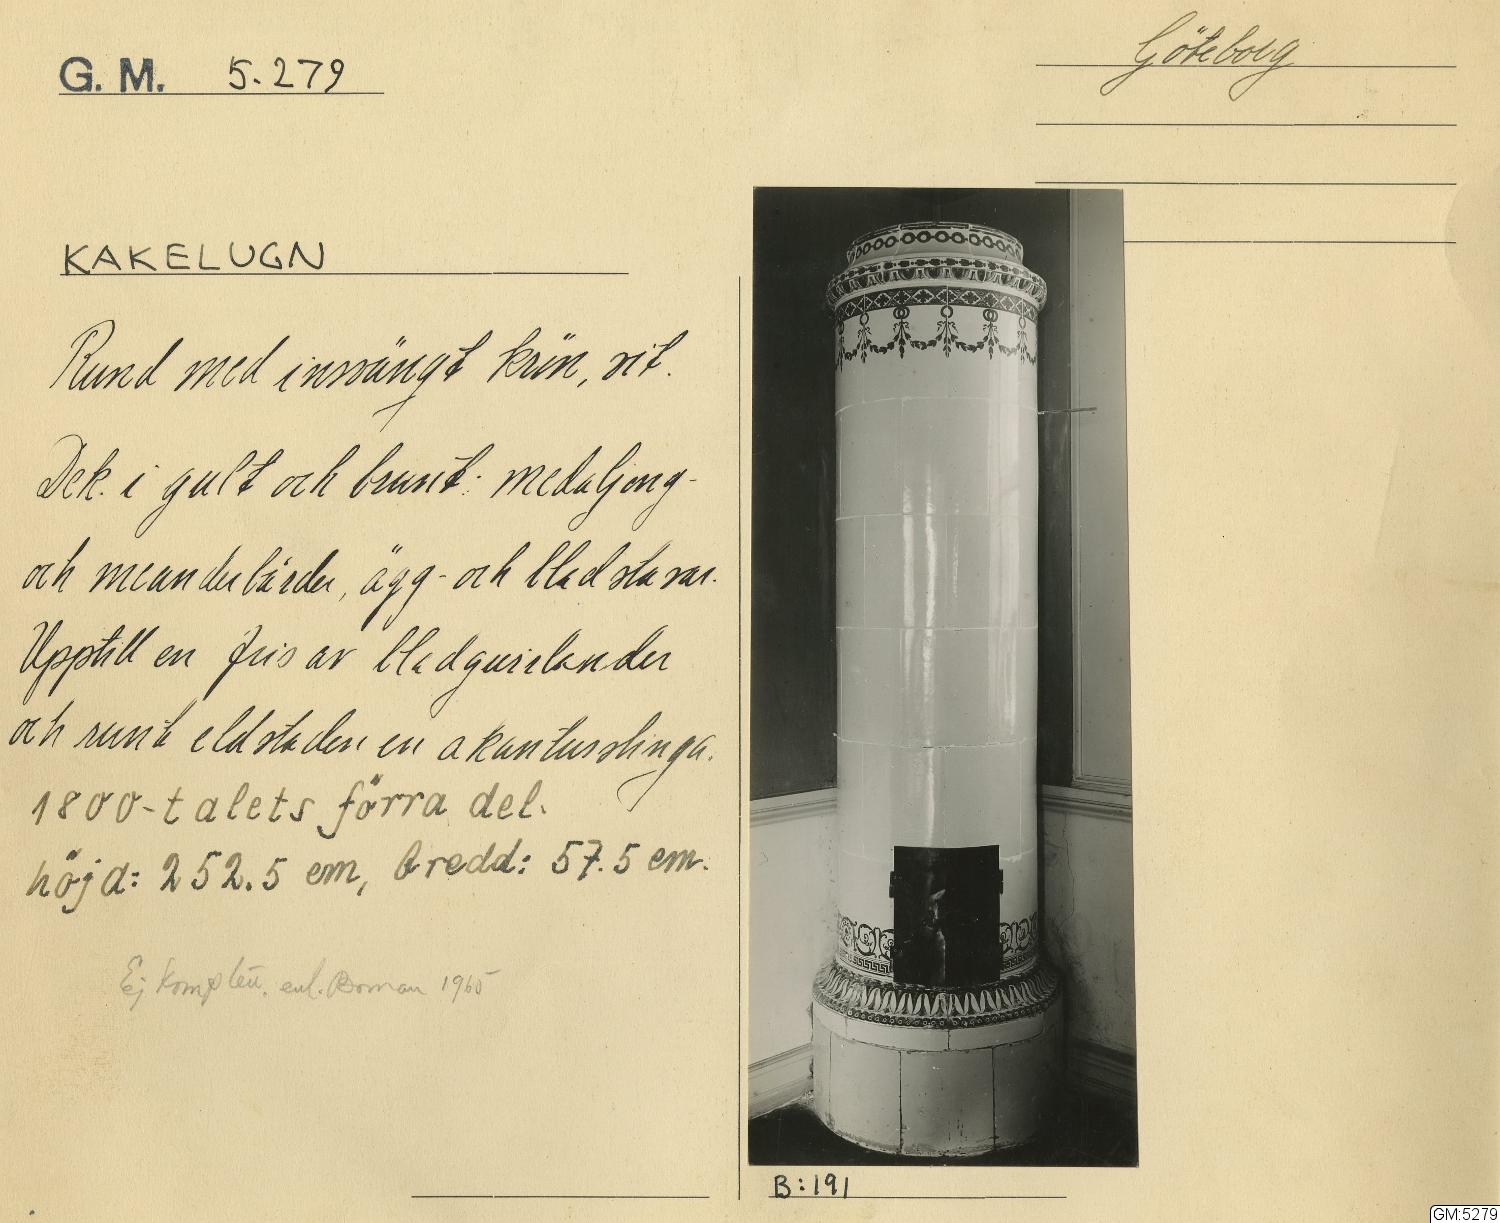 G. M. 5.279
Göteborg
KAKELUGN
Rund med insvängt krön, vit.
Dek. i gult och brunt: medaljong-
och meanderbårder, ägg- och bladstavar.
Upptill en fris av bladguirlander
och runt eldstaden en akantusslinga.
1800-talets förra del.
höjd: 252.5 cm, bredd: 57.5 cm.
Ej komplett. enl. Boman 1965
B:191
GM:5279